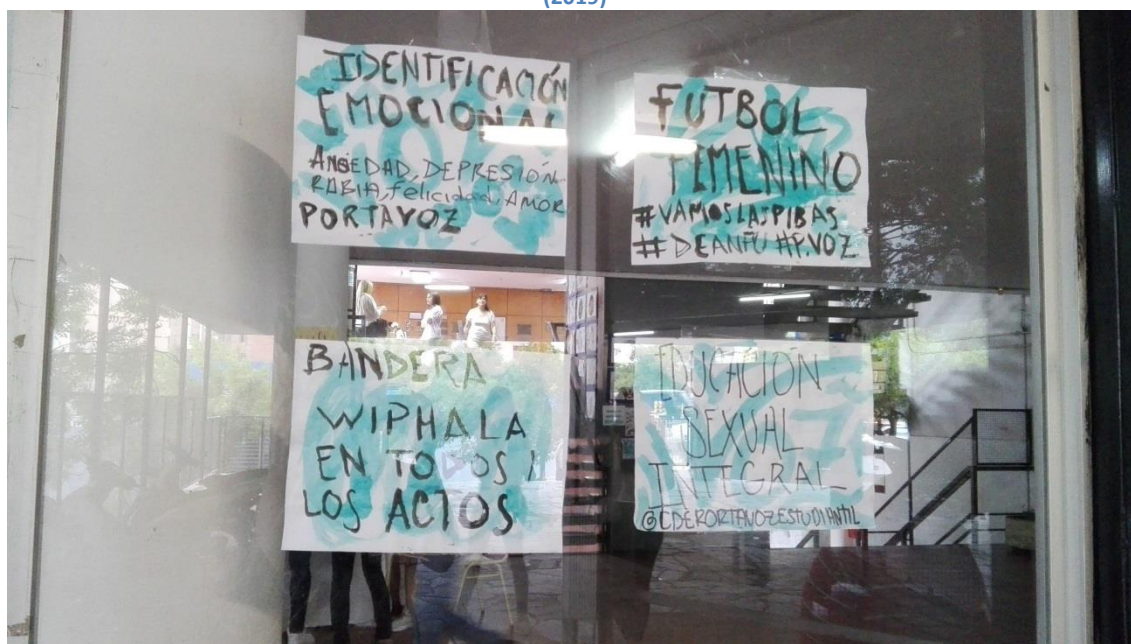 (2019)
IDENTIFICACIÓN
EMOCIONAL
ANSIEDAD, DEPRESIÓN
RABIA, felicidad, AMOR
PORTAVOZ
FUTBOL
FEMENINO
#VAMOSLASPIBAS
#DEANFU #P.VOZ
BANDERA
WIPHALA
EN TODOS
LOS ACTOS
EDUCACIÓN
SEXUAL
INTEGRAL
@CDEPORTAVOZESTUDIANTIL